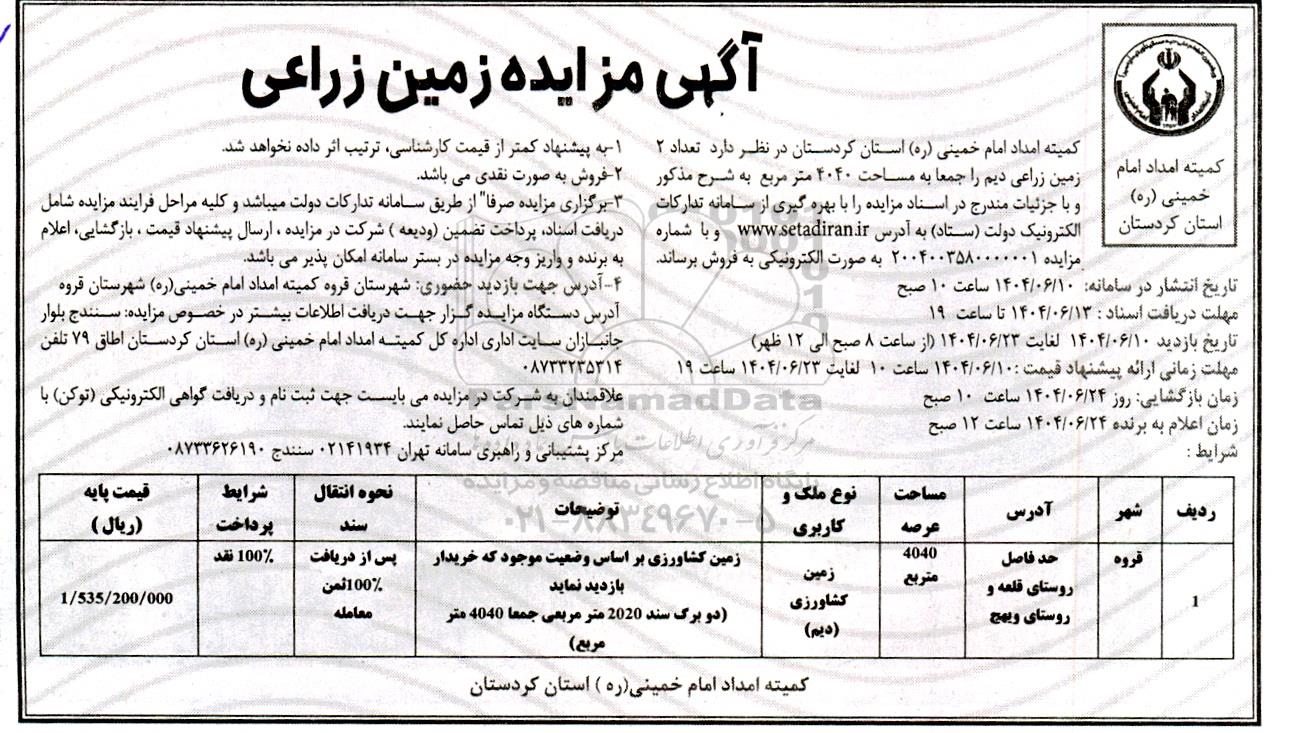 آگهی مزایده زمین زراعی
کمیته امداد امام
خمینی (ره)
استان کردستان
کمیته امداد امام خمینی (ره) استان کردستان در نظر دارد تعداد ۲
زمین زراعی دیم را جمعا به مساحت ۴۰۴۰ متر مربع به شرح مذکور
و با جزئیات مندرج در اسناد مزایده را با بهره گیری از سامانه تدارکات
الکترونیک دولت (ستاد) به آدرس www.setadiran.ir و با شماره
مزایده ۲۰۰۴۰۰۳۵۸۰۰۰۰۰۰۱ به صورت الکترونیکی به فروش برساند.
تاریخ انتشار در سامانه: ۱۴۰۴/۰۶/۱۰ ساعت ۱۰ صبح
مهلت دریافت اسناد : ۱۴۰۴/۰۶/۱۳ تا ساعت ۱۹
تاریخ بازدید ۱۴۰۴/۰۶/۱۰ لغایت ۱۴۰۴/۰۶/۲۳ (از ساعت ۸ صبح الی ۱۲ ظهر)
مهلت زمانی ارائه پیشنهاد قیمت :۱۴۰۴/۰۶/۱۰ ساعت ۱۰ لغایت ۱۴۰۴/۰۶/۲۳ ساعت ۱۹
زمان بازگشایی: روز ۱۴۰۴/۰۶/۲۴ ساعت ۱۰ صبح
زمان اعلام به برنده ۱۴۰۴/۰۶/۲۴ ساعت ۱۲ صبح
شرایط :
۱-به پیشنهاد کمتر از قیمت کارشناسی، ترتیب اثر داده نخواهد شد.
۲-فروش به صورت نقدی می باشد.
۳-برگزاری مزایده صرفا" از طریق سامانه تدارکات دولت میباشد و کلیه مراحل فرایند مزایده شامل
دریافت اسناد، پرداخت تضمین (ودیعه ) شرکت در مزایده ، ارسال پیشنهاد قیمت ، بازگشایی، اعلام
به برنده و واریز وجه مزایده در بستر سامانه امکان پذیر می باشد.
۴-آدرس جهت بازدید حضوری: شهرستان قروه کمیته امداد امام خمینی(ره) شهرستان قروه
آدرس دستگاه مزایده گزار جهت دریافت اطلاعات بیشتر در خصوص مزایده: سنندج بلوار
جانبازان سایت اداری اداره کل کمیته امداد امام خمینی (ره) استان کردستان اطاق ۷۹ تلفن
۰۸۷۳۳۲۳۵۳۱۴
علاقمندان به شرکت در مزایده می بایست جهت ثبت نام و دریافت گواهی الکترونیکی (توکن) با
شماره های ذیل تماس حاصل نمایند.
مرکز پشتیبانی و راهبری سامانه تهران ۰۲۱۴۱۹۳۴ سنندج ۰۸۷۳۳۶۲۶۱۹۰
ParsNamadData
پایگاه اطلاع رسانی مناقصه و مزایده
۰۲۱-۸۸۳۴۹۶۷۰-۵
ردیف شهر آدرس مساحت عرصه نوع ملک و کاربری توضیحات نحوه انتقال سند شرایط پرداخت قیمت پایه (ریال)
1 قروه حد فاصل روستای قلعه و روستای ویهج 4040 متربع زمین کشاورزی (دیم) زمین کشاورزی بر اساس وضعیت موجود که خریدار بازدید نماید (دو برگ سند 2020 متر مربعی جمعا 4040 متر مربع) پس از دریافت 100%ثمن معامله 100% نقد 1/535/200/000
کمیته امداد امام خمینی(ره ) استان کردستان